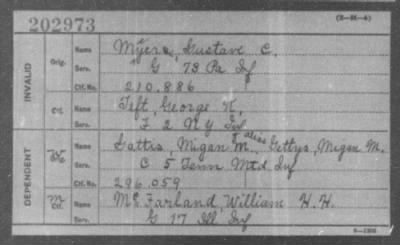 202973
(3-21-4)
INVALID
Orig.
Name Myers, Gustave C.
Serv. G 78 Pa Inf
Ctf. No. 210.886
Ctf.
Name Teft, George K.
Serv. F 2 N Y Inf
DEPENDENT
Name Gattis, Migan M. alias Gettys, Migan M.
Serv. C 5 Tenn Mtd Inf
Ctf. No. 296.059
M
Ctf.
Name McFarland, William H. H.
Serv. G 17 Ill Inf